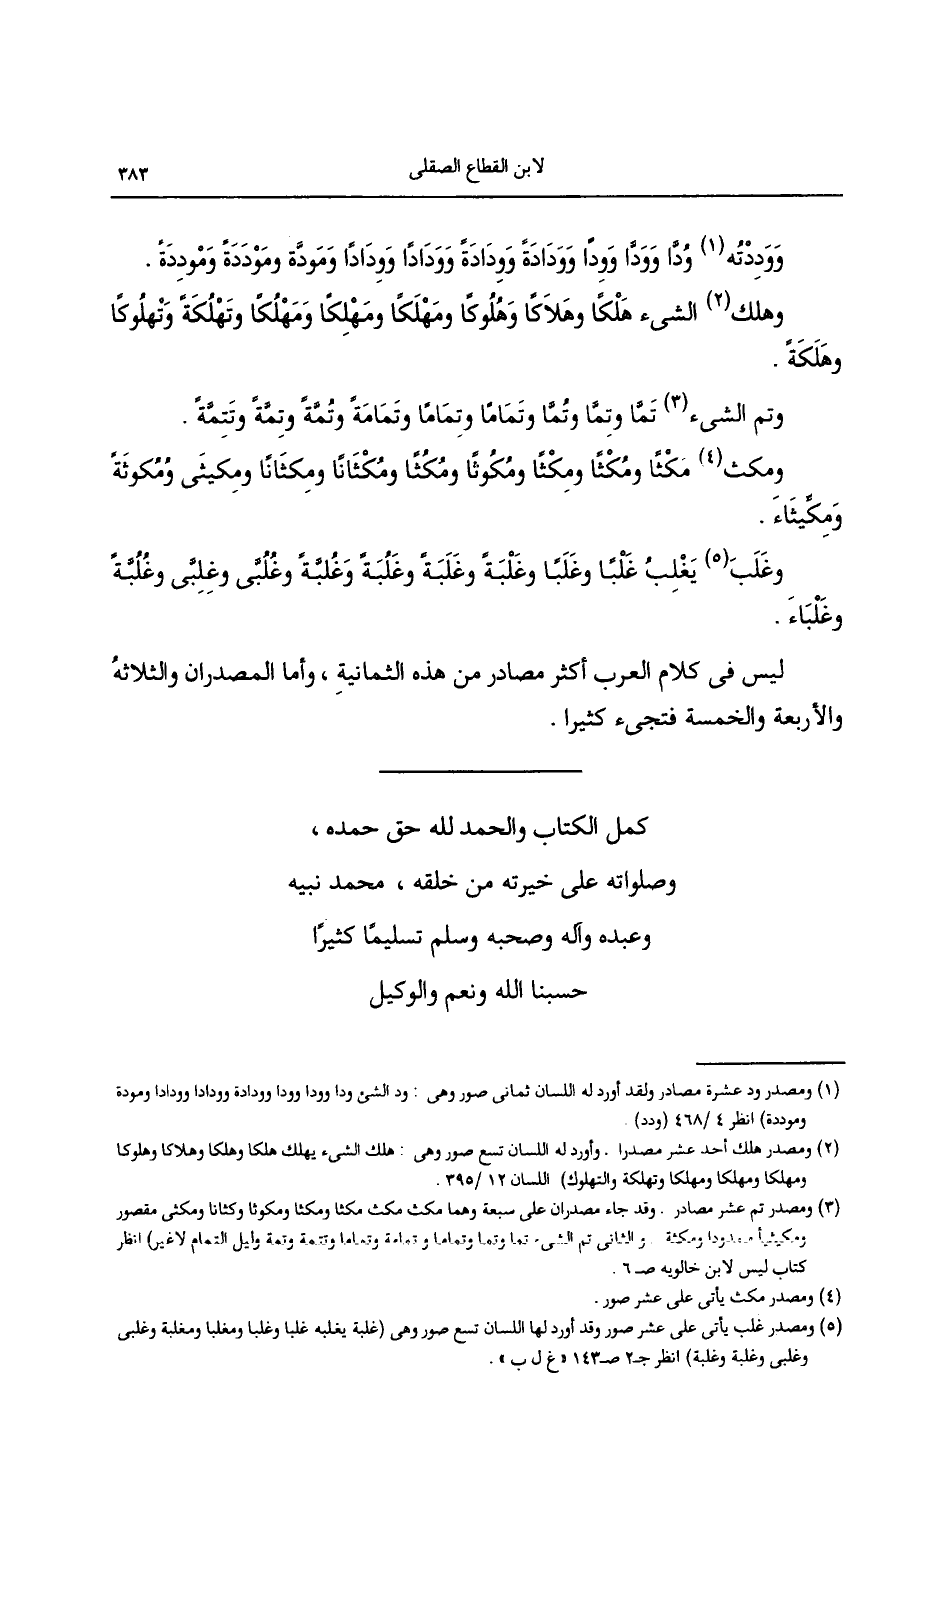 لابن القطاع الصقلى
٣٨٣
وَوَدِدْتُه(١) وُدًّا وَوَدًّا وَوِدًّا وَوَدَادَةً وَوِدَادَةً وَوَدَادًا وَوِدَادًا وَمَودَّة ومَوْدَدَةً ومَوْدِدَةً .
وهلك(٢) الشىء هَلْكًا وهَلَاكًا وَهُلُوكًا ومَهْلَكًا ومَهْلِكًا وَمَهْلُكًا وتَهْلُكَةً وَتْهلُوكًا
وهَلَكَةً .
وتم الشىء(٣) تَمًّا وتِمًّا وتُمًّا وتَمَامًا وتِمَامًا وتَمَامَةً وتُمَّةً وتِمَّةً وتَتِمَّةً .
ومكث(٤) مَكْثًا ومُكْثًا ومِكْثًا ومُكُوثًا ومُكُثًا ومُكْثَانًا ومِكثَانًا ومِكيثَى وَمُكوثَةً
وَمِكِّيثَاءَ .
وغَلَبَ(٥) يَغْلِبُ غَلْبًا وغَلَبًا وغَلْبَةً وغَلَبَةً وغَلُبَةً وَغُلبَّةً وغُلُبَّى وغِلِبَّى وغُلُبَّةً
وغَلْبَاءَ .
ليس فى كلام العرب أكثر مصادر من هذه الثمانية ، وأما المصدران والثلاثهُ
والأربعة والخمسة فتجىء كثيرا .
كمل الكتاب والحمد لله حق حمده ،
وصلواته على خيرته من خلقه ، محمد نبيه
وعبده وآله وصحبه وسلم تسليمًا كثيرًا
حسبنا الله ونعم والوكيل
(١) ومصدر ود عشرة مصادر ولقد أورد له اللسان ثمانى صور وهى : ود الشئ ودا وودا وودا وودادة وودادا وودادا ومودة
وموددة) انظر ٤ /٤٦٨ (ودد) .
(٢) ومصدر هلك أحد عشر مصدرا . وأورد له اللسان تسع صور وهى : هلك الشىء يهلك هلكا وهلكا وهلاكا وهلوكا
ومهلكا ومهلكا ومهلكا وتهلكة والتهلوك) اللسان ١٢ /٣٩٥ .
(٣) ومصدر تم عشر مصادر . وقد جاء مصدران على سبعة وهما مكث مكث مكثا ومكثا ومكوثا وكثانا ومكثى مقصور
ومكيثيأ ممدودا ومكثة . و الثانى تم الشىء تما وتما وتماما و تمامة وتماما وتتمة وتمة وليل التمام لاغير) انظر
كتاب ليس لابن خالويه صـ ٦ .
(٤) ومصدر مكث يأتى على عشر صور .
(٥) ومصدر غلب يأتى على عشر صور وقد أورد لها اللسان تسع صور وهى (غلبة يغلبه غلبا وغلبا ومغلبا ومغلبة وغلبى
وغلبى وغلبة وغلبة) انظر جـ٢ صـ١٤٣ «غ ل ب» .